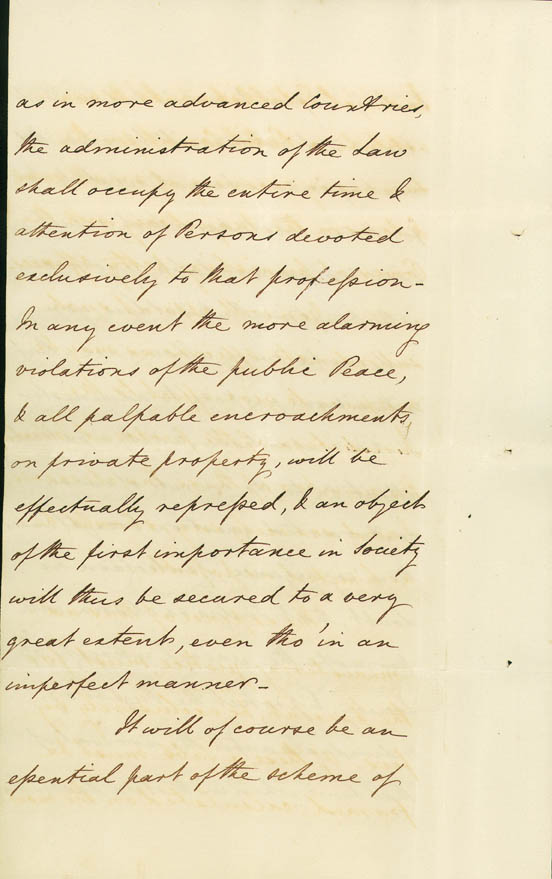 as in more advanced Countries,
the administration of the Law
shall occupy the entire time &
attention of Persons devoted
exclusively to that profession -
In any event the more alarming
violations of the public Peace,
& all palpable encroachments
on private property, will be
effectually repressed, & an object
of the first importance in Society
will thus be secured to a very
great extent, even tho' in an
imperfect manner -
It will of course be an
essential part of the scheme of